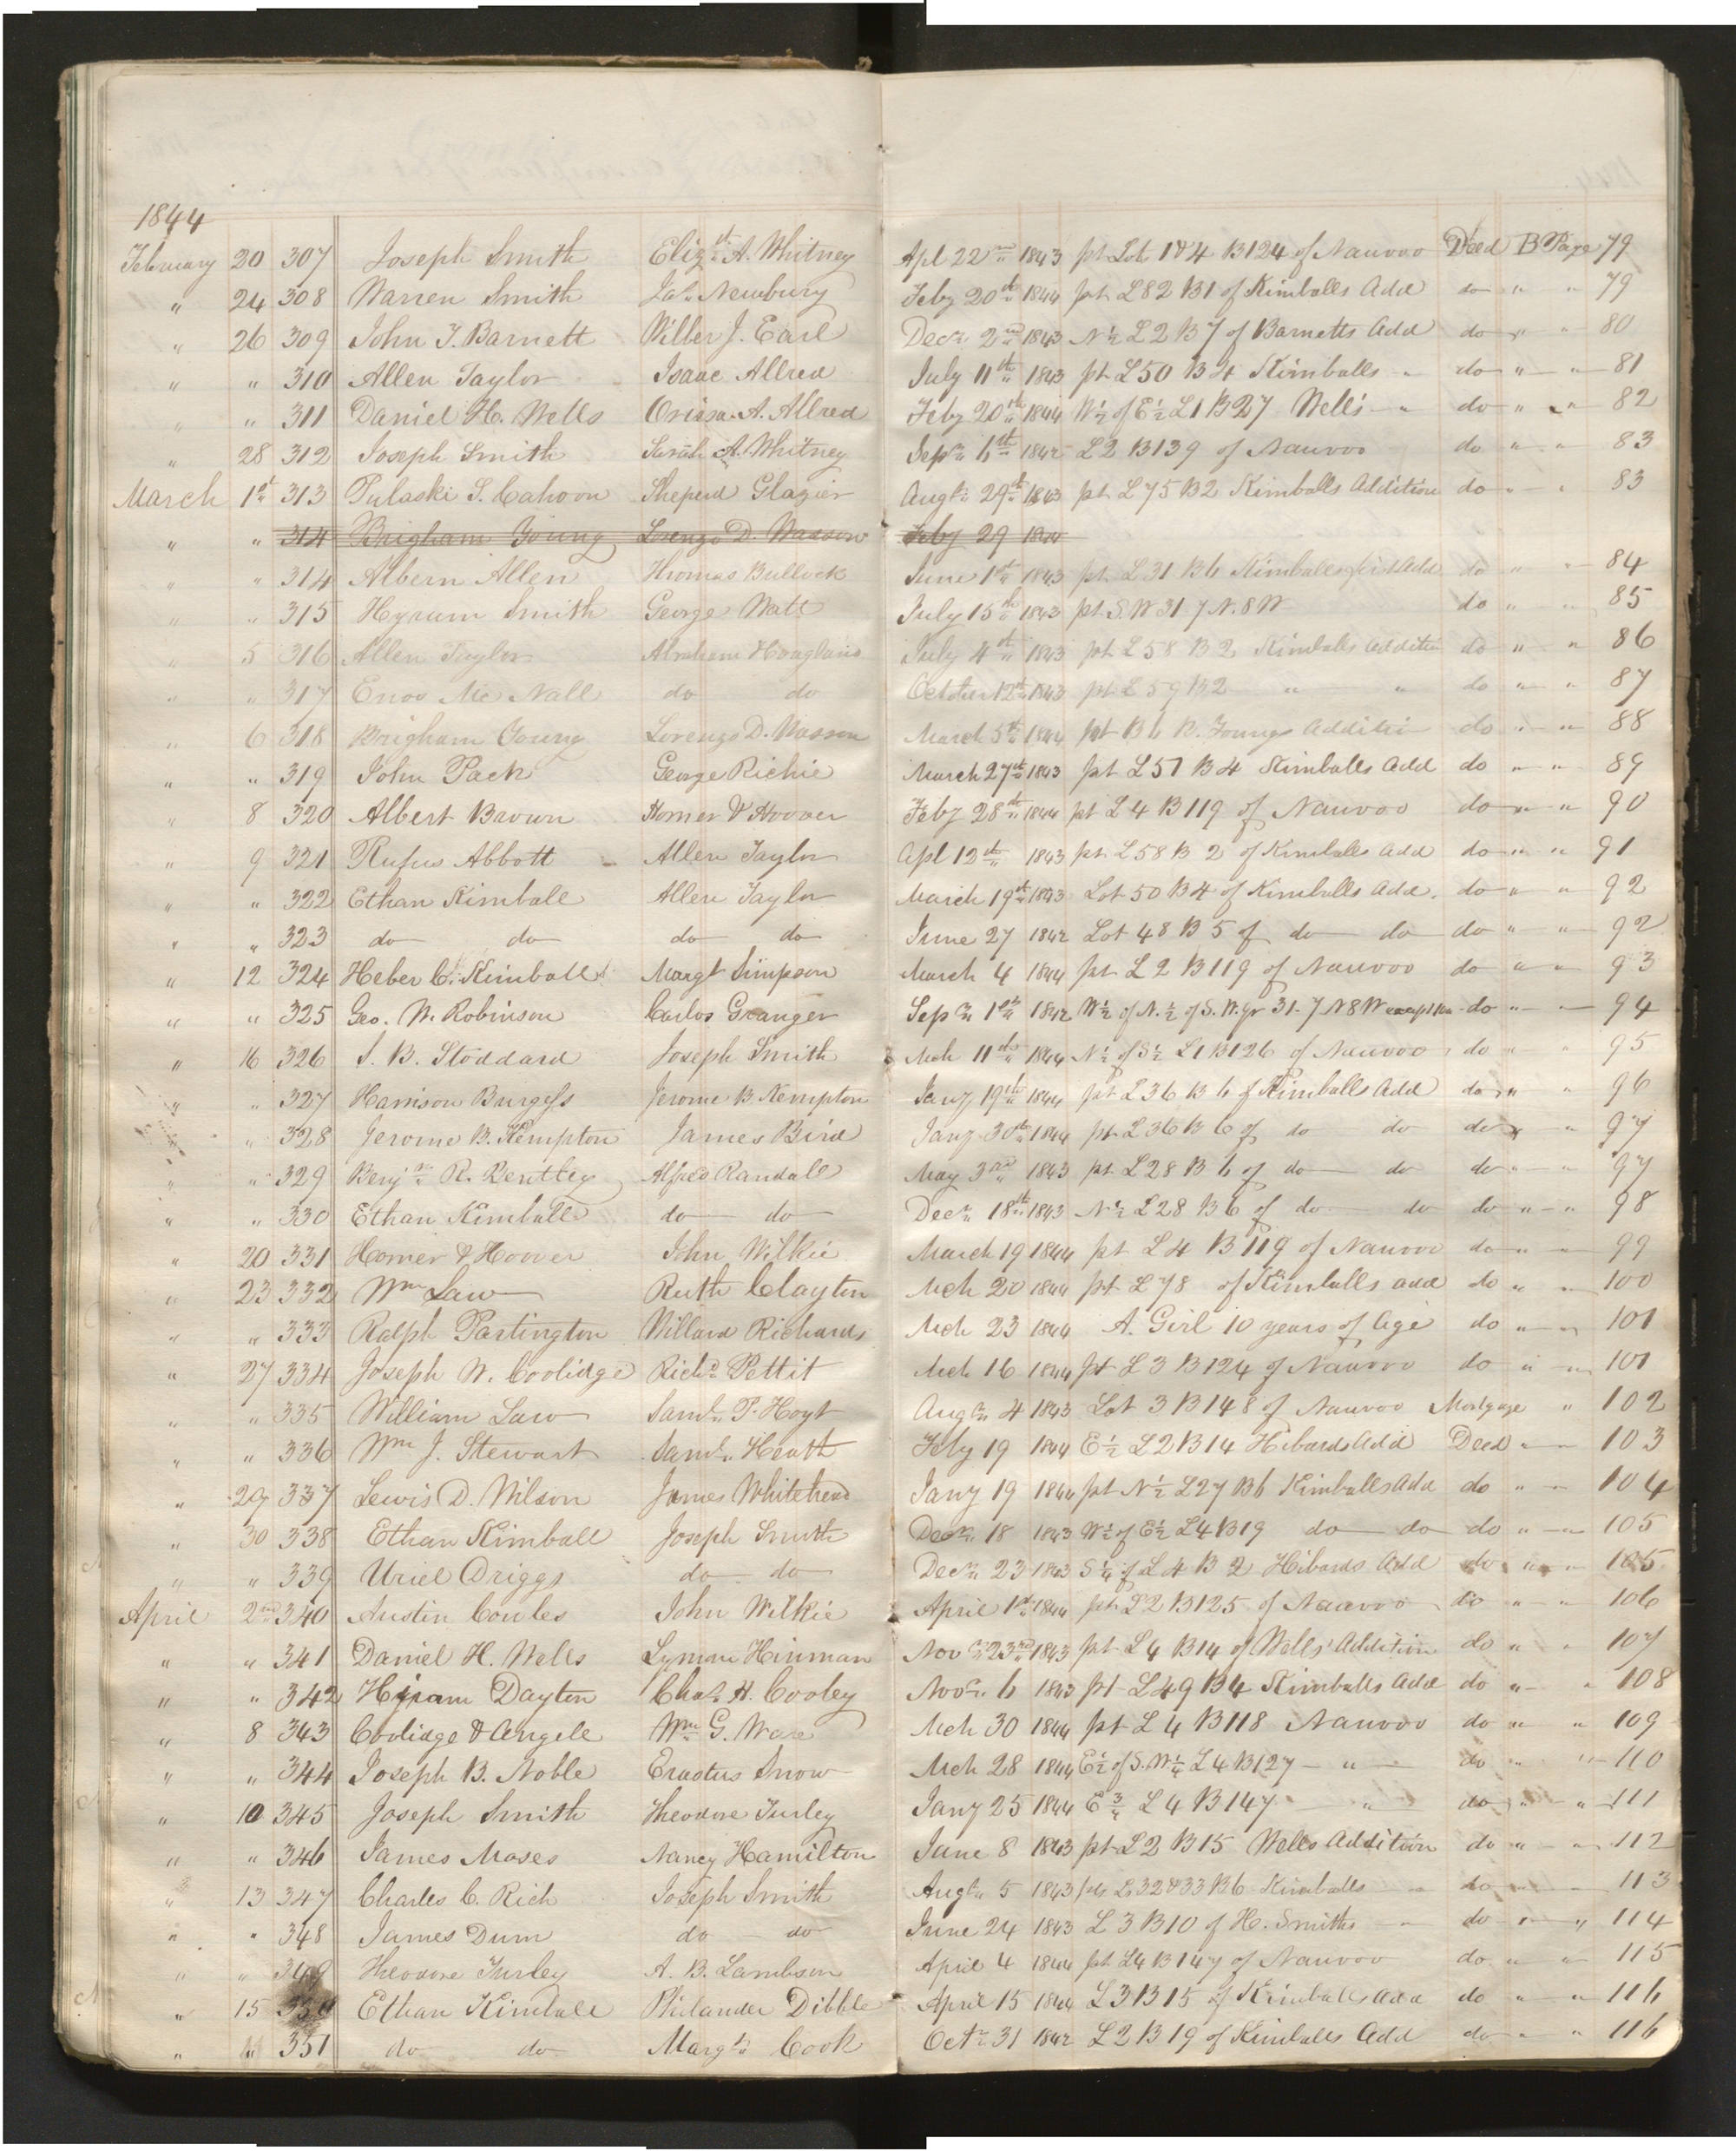 1844
February 20 307 Joseph Smith Eliz.th A. Whitney Apl 22nd 1843 pt Lot 1 & 4 B 124 of Nauvoo Deed B Page 79
" 24 308 Warren Smith Jas. Newbury Feby 20th 1844 pt L 82 B 1 of Kimballs Add do " " 79
" 26 309 John T. Barnett Willer J. Earl Decr. 2nd 1843 N ½ L 2 B 7 of Barnetts Add do " " 80
" " 310 Allen Taylor Isaac Allred July 11th 1843 pt L 50 B 4 Kimballs " do " " 81
" " 311 Daniel H. Wells Orissa A. Allred Feby 20th 1844 W ½ of E ½ L 1 B 27 Wells " do " " 82
" 28 312 Joseph Smith Sarah A. Whitney Sepr. 6th 1842 L 2 B 139 of Nauvoo do " " 83
March 1st 313 Pulaski S. Cahoon Sheperd Glazier Augt. 29th 1843 pt L 75 B 2 Kimballs Addition do " " 83
" " 314 Brigham Young Lorenzo D. Wasson Feby 29 1844
" " 314 Albern Allen Thomas Bullock June 1st 1843 pt L 31 B 6 Kimballs first Add do " " 84
" " 315 Hyrum Smith George Watt July 15th 1843 pt S.W 31. 7 N. 8 W do " " 85
" 5 316 Allen Taylor Abraham Hoagland July 4th 1843 pt L 58 B 2 Kimballs Addition do " " 86
" " 317 Enos McNall do do October 12th 1843 pt L 59 B 2 " " do " " 87
" 6 318 Brigham Young Lorenzo D. Wasson March 5th 1844 pt B 6 B. Youngs Additi do " " 88
" " 319 John Pack George Richie March 27th 1843 pt L 57 B 4 Kimballs Add do " " 89
" 8 320 Albert Brown Homer & Hoover Feby 28th 1844 pt L 4 B 119 of Nauvoo do " " 90
" 9 321 Rufus Abbott Allen Taylor Apl 12th 1843 pt L 58 B 2 of Kimballs Add do " " 91
" " 322 Ethan Kimball Allen Taylor March 19th 1843 Lot 50 B 4 of Kimballs Add. do " " 92
" " 323 do do do do June 27 1842 Lot 48 B 5 of do do do " " 92
" 12 324 Heber C. Kimball Margt Simpson March 4 1844 pt L 2 B 119 of Nauvoo do " " 93
" " 325 Geo. W. Robinson Carlos Granger Sepr. 1st 1842 W ½ of N. ½ of S.W. qr 31. 7 N 8 W except do " " 94
" 16 326 S. B. Stoddard Joseph Smith Mch 11th 1844 N ½ of S ½ L 1 B 126 of Nauvoo do " " 95
" " 327 Harrison Burgess Jerome B. Kempton Jany 19th 1844 pt L 36 B 6 of Kimballs Add do " " 96
" " 328 Jerome B. Kempton James Bird Jany 30th 1844 pt L 36 B 6 of do do do " " 97
" " 329 Benjn. R. Bentley Alfred Randall May 3rd 1843 pt L 28 B 6 of do do do " " 97
" " 330 Ethan Kimball do do Decr. 18th 1843 N ½ L 28 B 6 of do do do " " 98
" 20 331 Homer & Hoover John Wilkie March 19 1844 pt L 4 B 119 of Nauvoo do " " 99
" 23 332 Wm Law Ruth Clayton Mch 20 1844 pt L 78 of Kimballs add do " " 100
" " 333 Ralph Partington Willard Richards Mch 23 1844 A. Girl 10 years of Age do " " 101
" 27 334 Joseph W. Coolidge Richd. Pettit Mch 16 1844 pt L 3 B 124 of Nauvoo do " " 101
" " 335 William Law Saml. P. Hoyt Augt. 4 1843 Lot 3 B 148 of Nauvoo Mortgage " 102
" " 336 Wm J. Stewart Saml. Heath Feby 19 1844 E ½ L 2 B 14 Hibards Add Deed " " 103
" 29 337 Lewis D. Wilson James Whitehead Jany 19 1844 pt N ½ L 27 B 6 Kimballs Add do " " 104
" 30 338 Ethan Kimball Joseph Smith Decr. 18 1843 W ½ of E ½ L 4 B 19 do do do " " 105
" " 339 Uriel Driggs do do Decr. 23 1843 S ¼ of L 4 B 2 Hibards Add do " " 105
April 2nd 340 Austin Cowles John Wilkie April 1st 1844 pt L 2 B 125 of Nauvoo do " " 106
" " 341 Daniel H. Wells Lyman Hinman Novr. 23rd 1843 pt L 4 B 14 of Wells' Addition do " " 107
" " 342 Hiram Dayton Chas. H. Cooley Novr. 6 1843 pt L 49 B 4 Kimballs Add do " " 108
" 8 343 Coolidge & Angele Wm. G. Ware Mch 30 1844 pt L 4 B 118 Nauvoo do " " 109
" " 344 Joseph B. Noble Erastus Snow Mch 28 1844 E ½ of S.W ¼ L 4 B 127 " do " " 110
" 10 345 Joseph Smith Theodore Turley Jany 25 1844 E ¾ L 4 B 147 " do " " 111
" " 346 James Moses Nancy Hamilton June 8 1843 pt L 2 B 15 Wells Addition do " " 112
" 13 347 Charles C. Rich Joseph Smith Augt. 5 1843 pts Ls 32 & 33 B 6 Kimballs " do " " 113
" " 348 James Dum do do June 24 1843 L 3 B 10 of H. Smiths " do " " 114
" " 349 Theodore Turley A. B. Lambson April 4 1844 pt L 4 B 147 of Nauvoo do " " 115
" 15 350 Ethan Kimball Philander Dibble April 15 1844 L 3 B 15 of Kimballs Add do " " 116
" " 351 do do Margt. Cook Octr. 31 1842 L 2 B 19 of Kimballs Add do " " 116